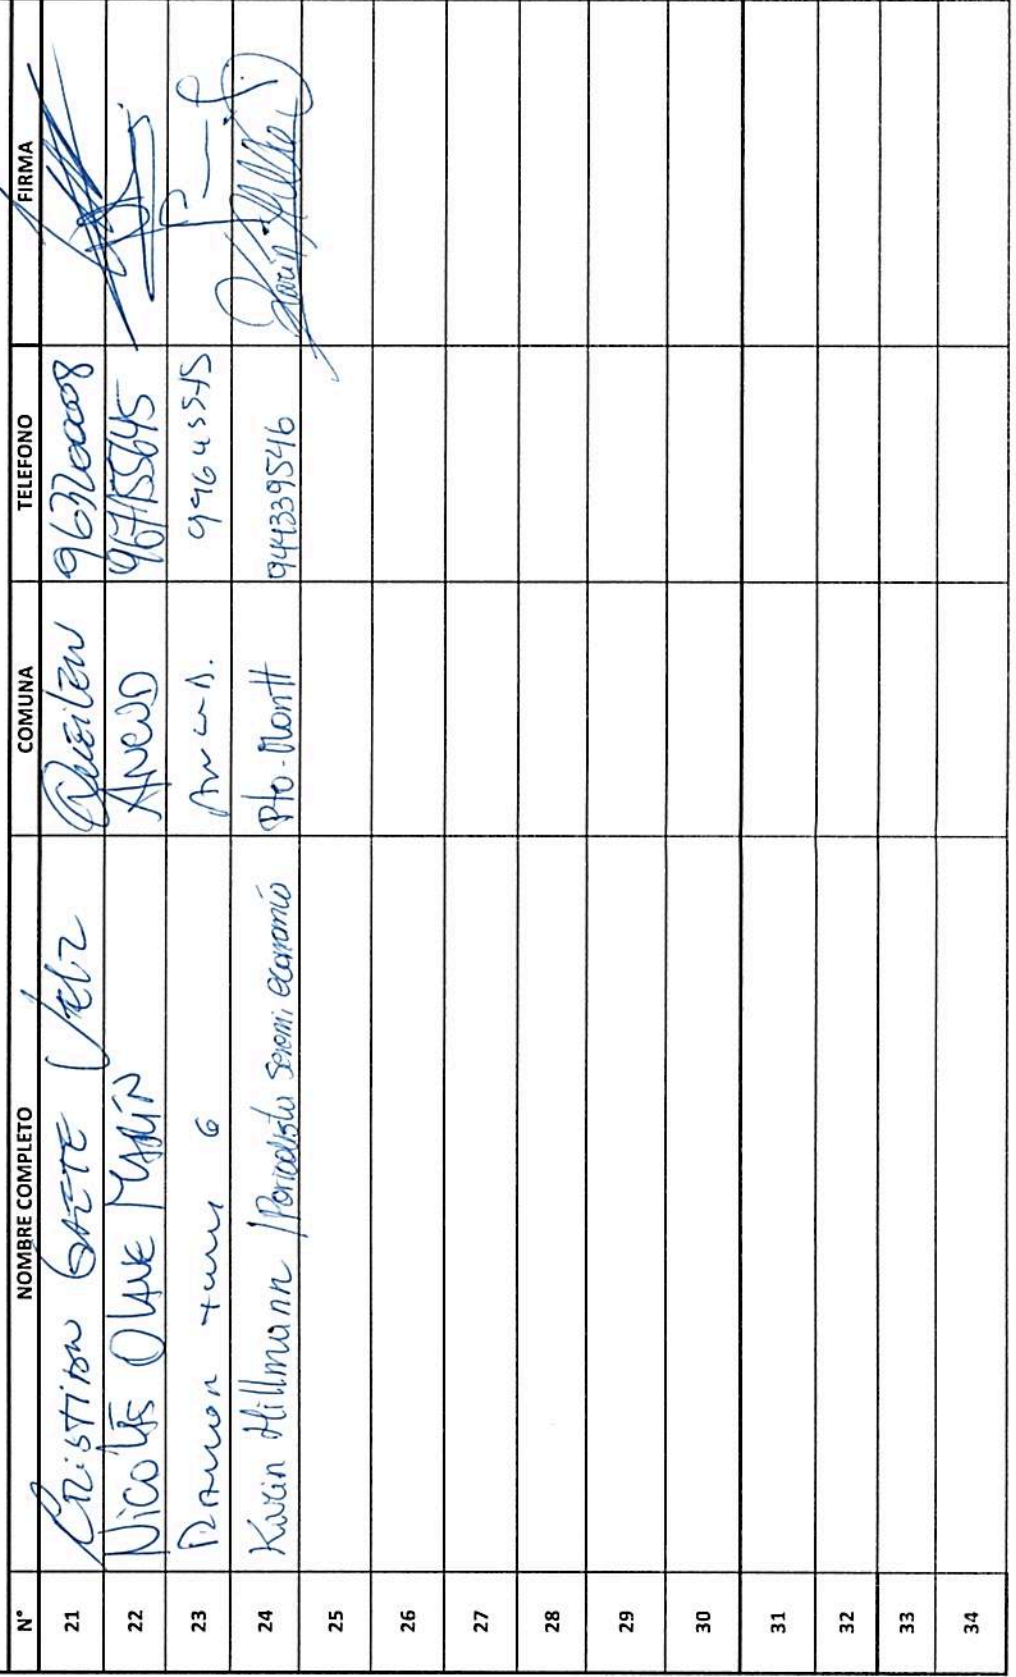 N° NOMBRE COMPLETO COMUNA TELEFONO FIRMA
21 Cristian GAETE Veliz Queilen
22 Nicolás OLAVE MARÍN ANCUD 967155645
23 Ramon 6
24 Karin Hillmann / Periodista Seremi economía Pto-Montt 944339546
25
26
27
28
29
30
31
32
33
34